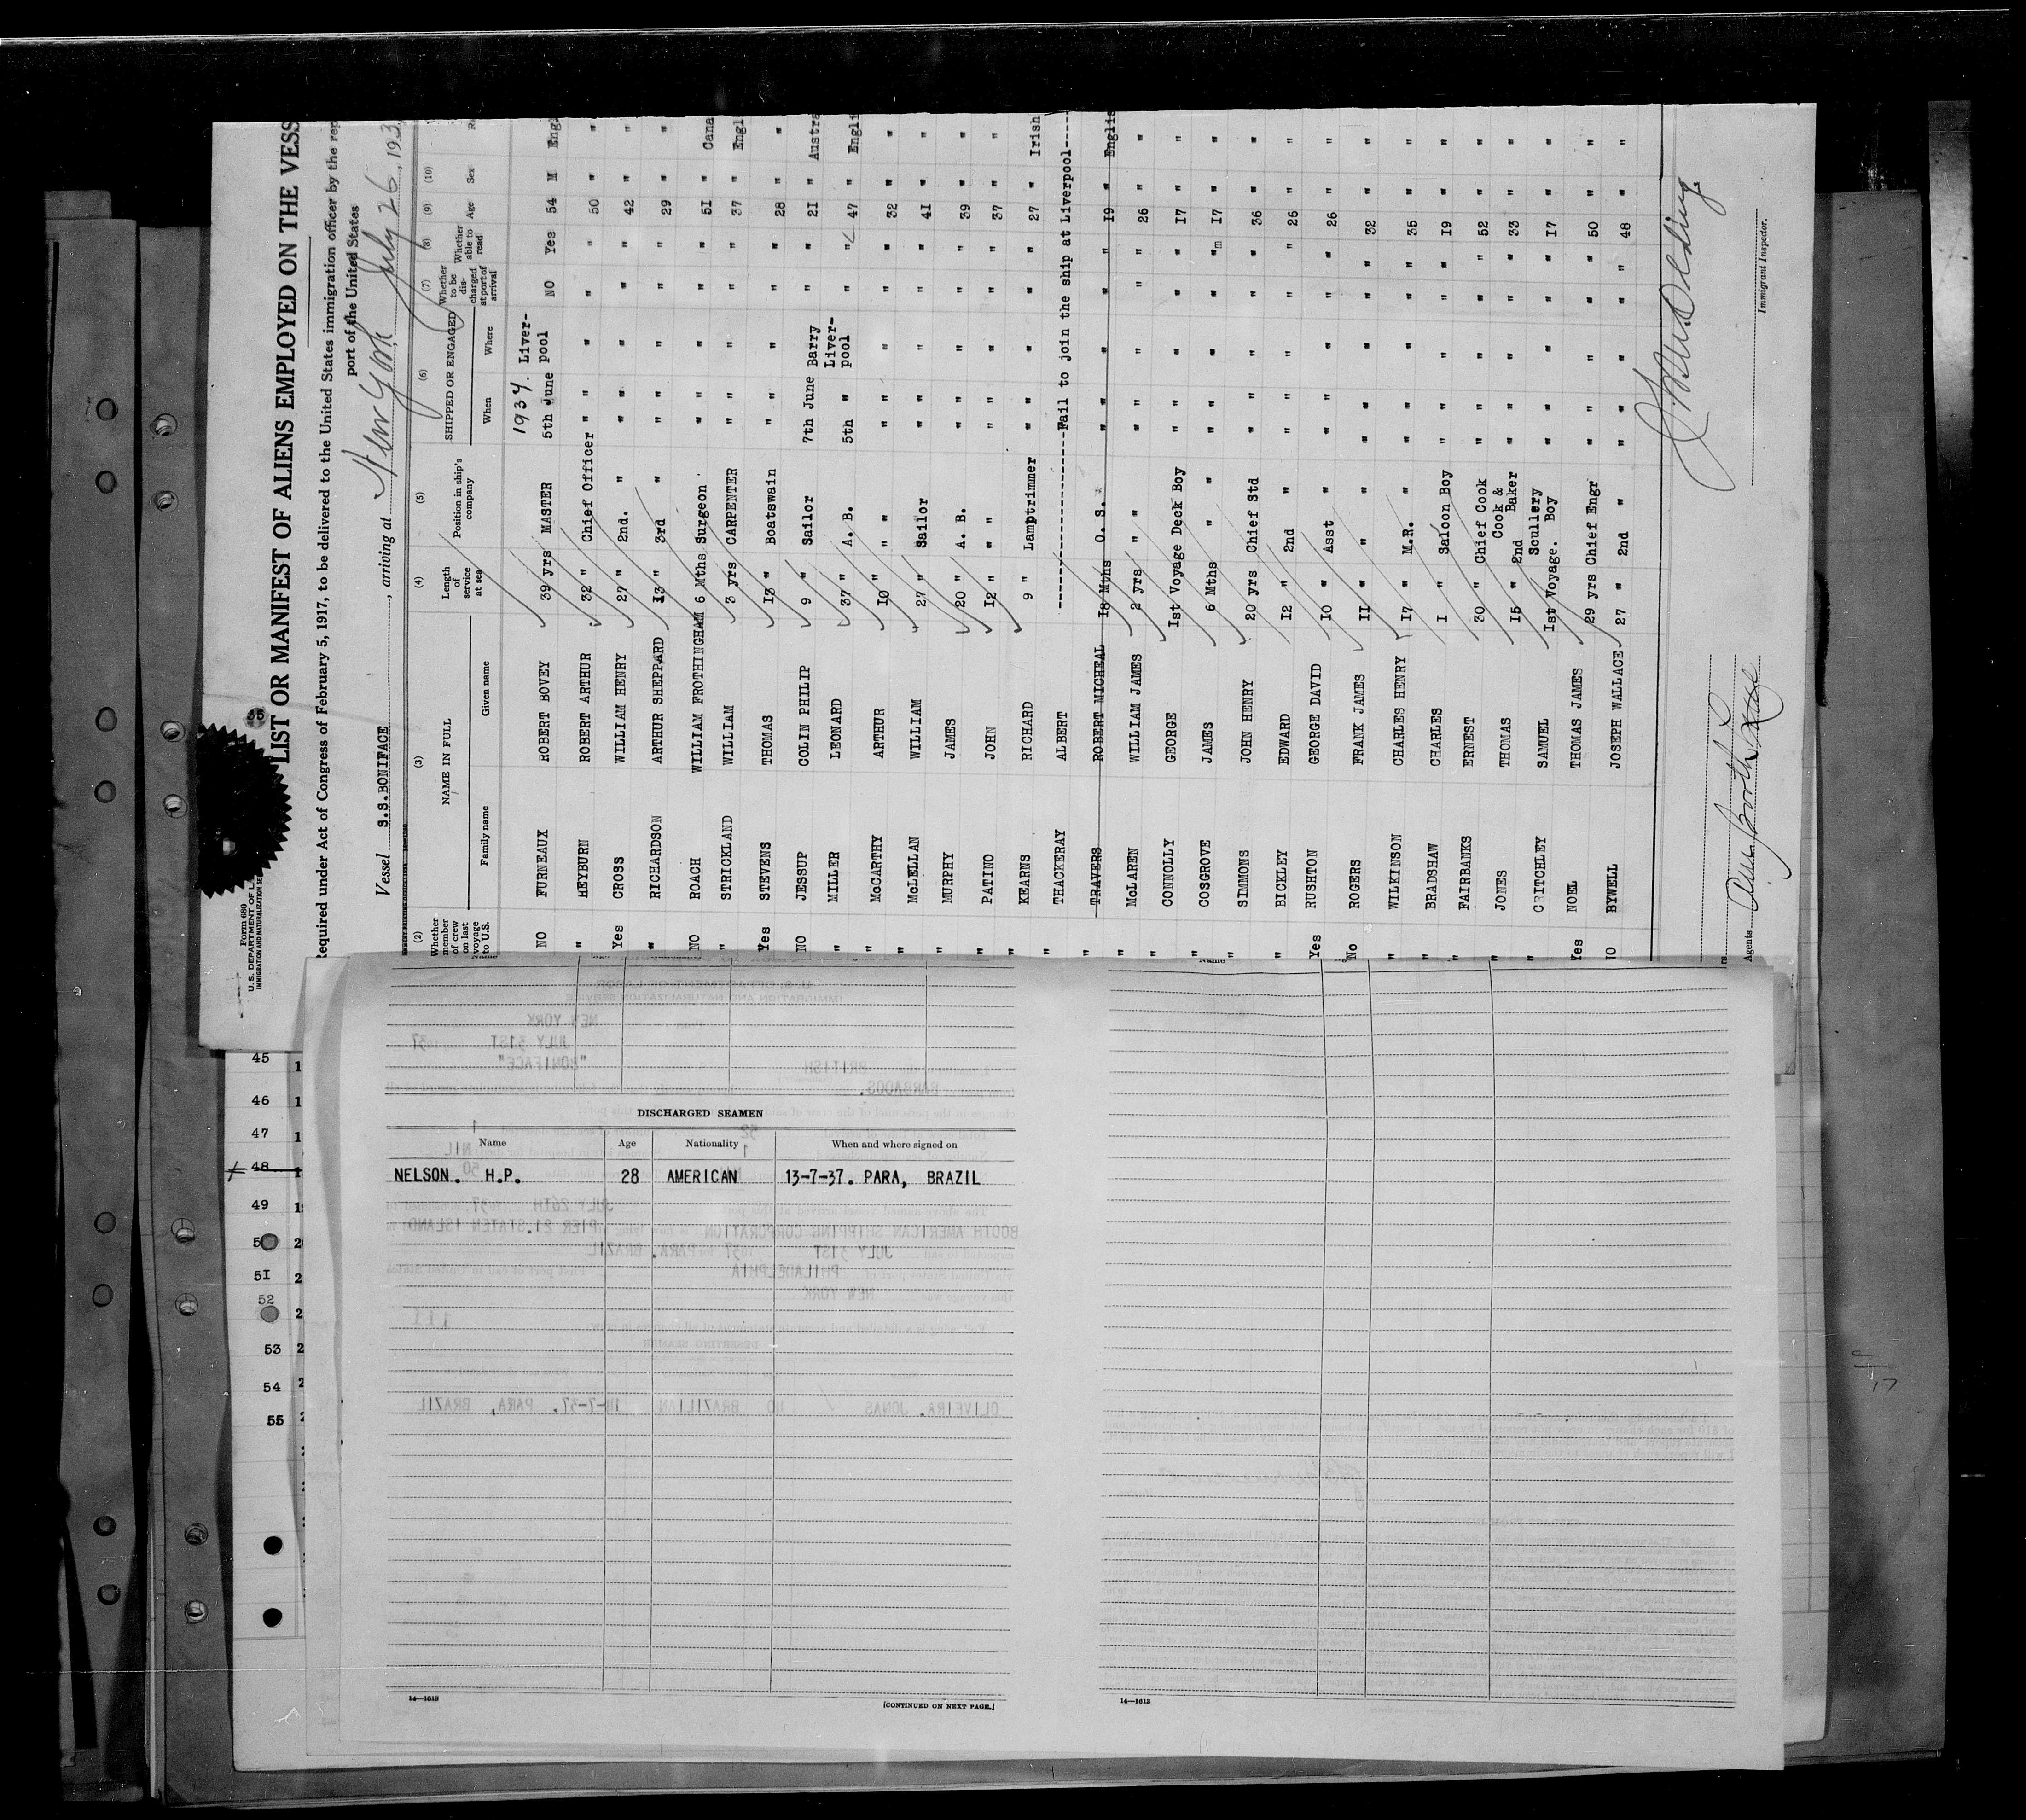 Form 680
U. S. DEPARTMENT OF L
IMMIGRATION AND NATURALIZATION SE
35
LIST OR MANIFEST OF ALIENS EMPLOYED ON THE VESS
Required under Act of Congress of February 5, 1917, to be delivered to the United States immigration officer by the rep
port of the United States
Vessel S.S.BONIFACE, arriving at New York July 26, 193
(2) (3) (4) (5) (6) (7) (8) (9) (10)
Whether member of crew on last voyage to U.S. NAME IN FULL Length of service at sea Position in ship's company SHIPPED OR ENGAGED Whether to be discharged at port of arrival Whether able to read Age Sex
Family name Given name When Where
1937. Liver-
NO FURNEAUX ROBERT BOVEY 39 yrs MASTER 5th June pool NO Yes 54 M Engl
" HEYBURN ROBERT ARTHUR 32 " Chief Officer " " " " " 50 " "
Yes CROSS WILLIAM HENRY 27 " 2nd. " " " " " " 42 " "
" RICHARDSON ARTHUR SHEPPARD 13 " 3rd " " " " " " 29 " "
NO ROACH WILLIAM FROTHINGHAM 6 Mths Surgeon " " " " " 51 " Cana
" STRICKLAND WILLIAM 3 yrs CARPENTER " " " " " 37 " Engl
Yes STEVENS THOMAS 13 " Boatswain " " " " " 28 " "
NO JESSUP COLIN PHILIP 9 " Sailor 7th June Barry " " 21 " Austra
" MILLER LEONARD 37 " A. B. 5th " Liver-pool " " 47 " Engli
" McCARTHY ARTHUR 10 " " " " " " " " 32 " "
" McLELLAN WILLIAM 27 " Sailor " " " " " 41 " "
" MURPHY JAMES 20 " A. B. " " " " " 39 " "
" PATINO JOHN 12 " " " " " " " " 37 " "
" KEARNS RICHARD 9 " Lamptrimmer " " " " " 27 " Irish
" THACKERAY ALBERT ------------------Fail to join the ship at Liverpool----
" TRAVERS ROBERT MICHEAL 18 Mths O. S. " " " " " 19 " Englis
" McLAREN WILLIAM JAMES 2 yrs " " " " " " " 26 " "
" CONNOLLY GEORGE 1st Voyage Deck Boy " " " " " 17 " "
" COSGROVE JAMES 6 Mths " " " " " " "m 17 " "
" SIMMONS JOHN HENRY 20 yrs Chief Std " " " " " 36 " "
" BICKLEY EDWARD 12 " 2nd " " " " " " 25 " "
Yes RUSHTON GEORGE DAVID 10 " Asst " " " " " " 26 " "
No ROGERS FRANK JAMES 11 " " " " " " " " 32 " "
" WILKINSON CHARLES HENRY 17 " M.R. " " " " " " 35 " "
" BRADSHAW CHARLES 1 " Saloon Boy " " " " " 19 " "
" FAIRBANKS ERNEST 30 " Chief Cook " " " " " 52 " "
" JONES THOMAS 15 " 2nd Cook & Baker " " " " " 33 " "
" CRITCHLEY SAMUEL 1st Voyage. Scullery Boy " " " " " 17 " "
Yes NOEL THOMAS JAMES 29 yrs Chief Engr " " " " " 50 " "
NO BYWELL JOSEPH WALLACE 27 " 2nd " " " " " " 48 " "
Agents
Immigrant Inspector.
45
46
47
48
49
50
51
52
53
54
55
DISCHARGED SEAMEN
Name Age Nationality When and where signed on
NELSON. H.P. 28 AMERICAN 13-7-37. PARA, BRAZIL
NEW YORK
JULY 31ST 37
"BONIFACE"
BRITISH
BARBADOS.
NIL
JULY 26TH 37
BOOTH AMERICAN SHIPPING CORPORATION PIER 21. STATEN ISLAND
JULY 31ST 37 PARA. BRAZIL
PHILADELPHIA
NEW YORK
DESERTING SEAMEN
OLIVEIRA. JONAS 40 BRAZILIAN 14-7-37. PARA, BRAZIL
14—1613
[CONTINUED ON NEXT PAGE.]
14—1613